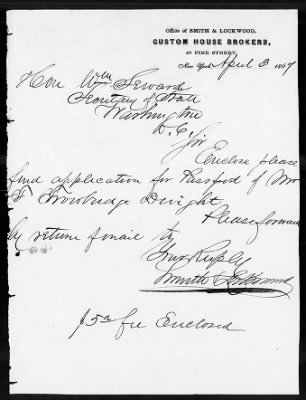 Office of SMITH & LOCKWOOD,
CUSTOM HOUSE BROKERS,
49 PINE STREET,
New York April 3 1867
Hon Wm Seward
Secretary of State
Washington
D.C.
Sir
Enclose please
find application for Passport of Mr
T Trowbridge Dwight
Please forward
by return of mail to
Yours Respfly
Smith & Lockwood
$5 00 fee Enclosed